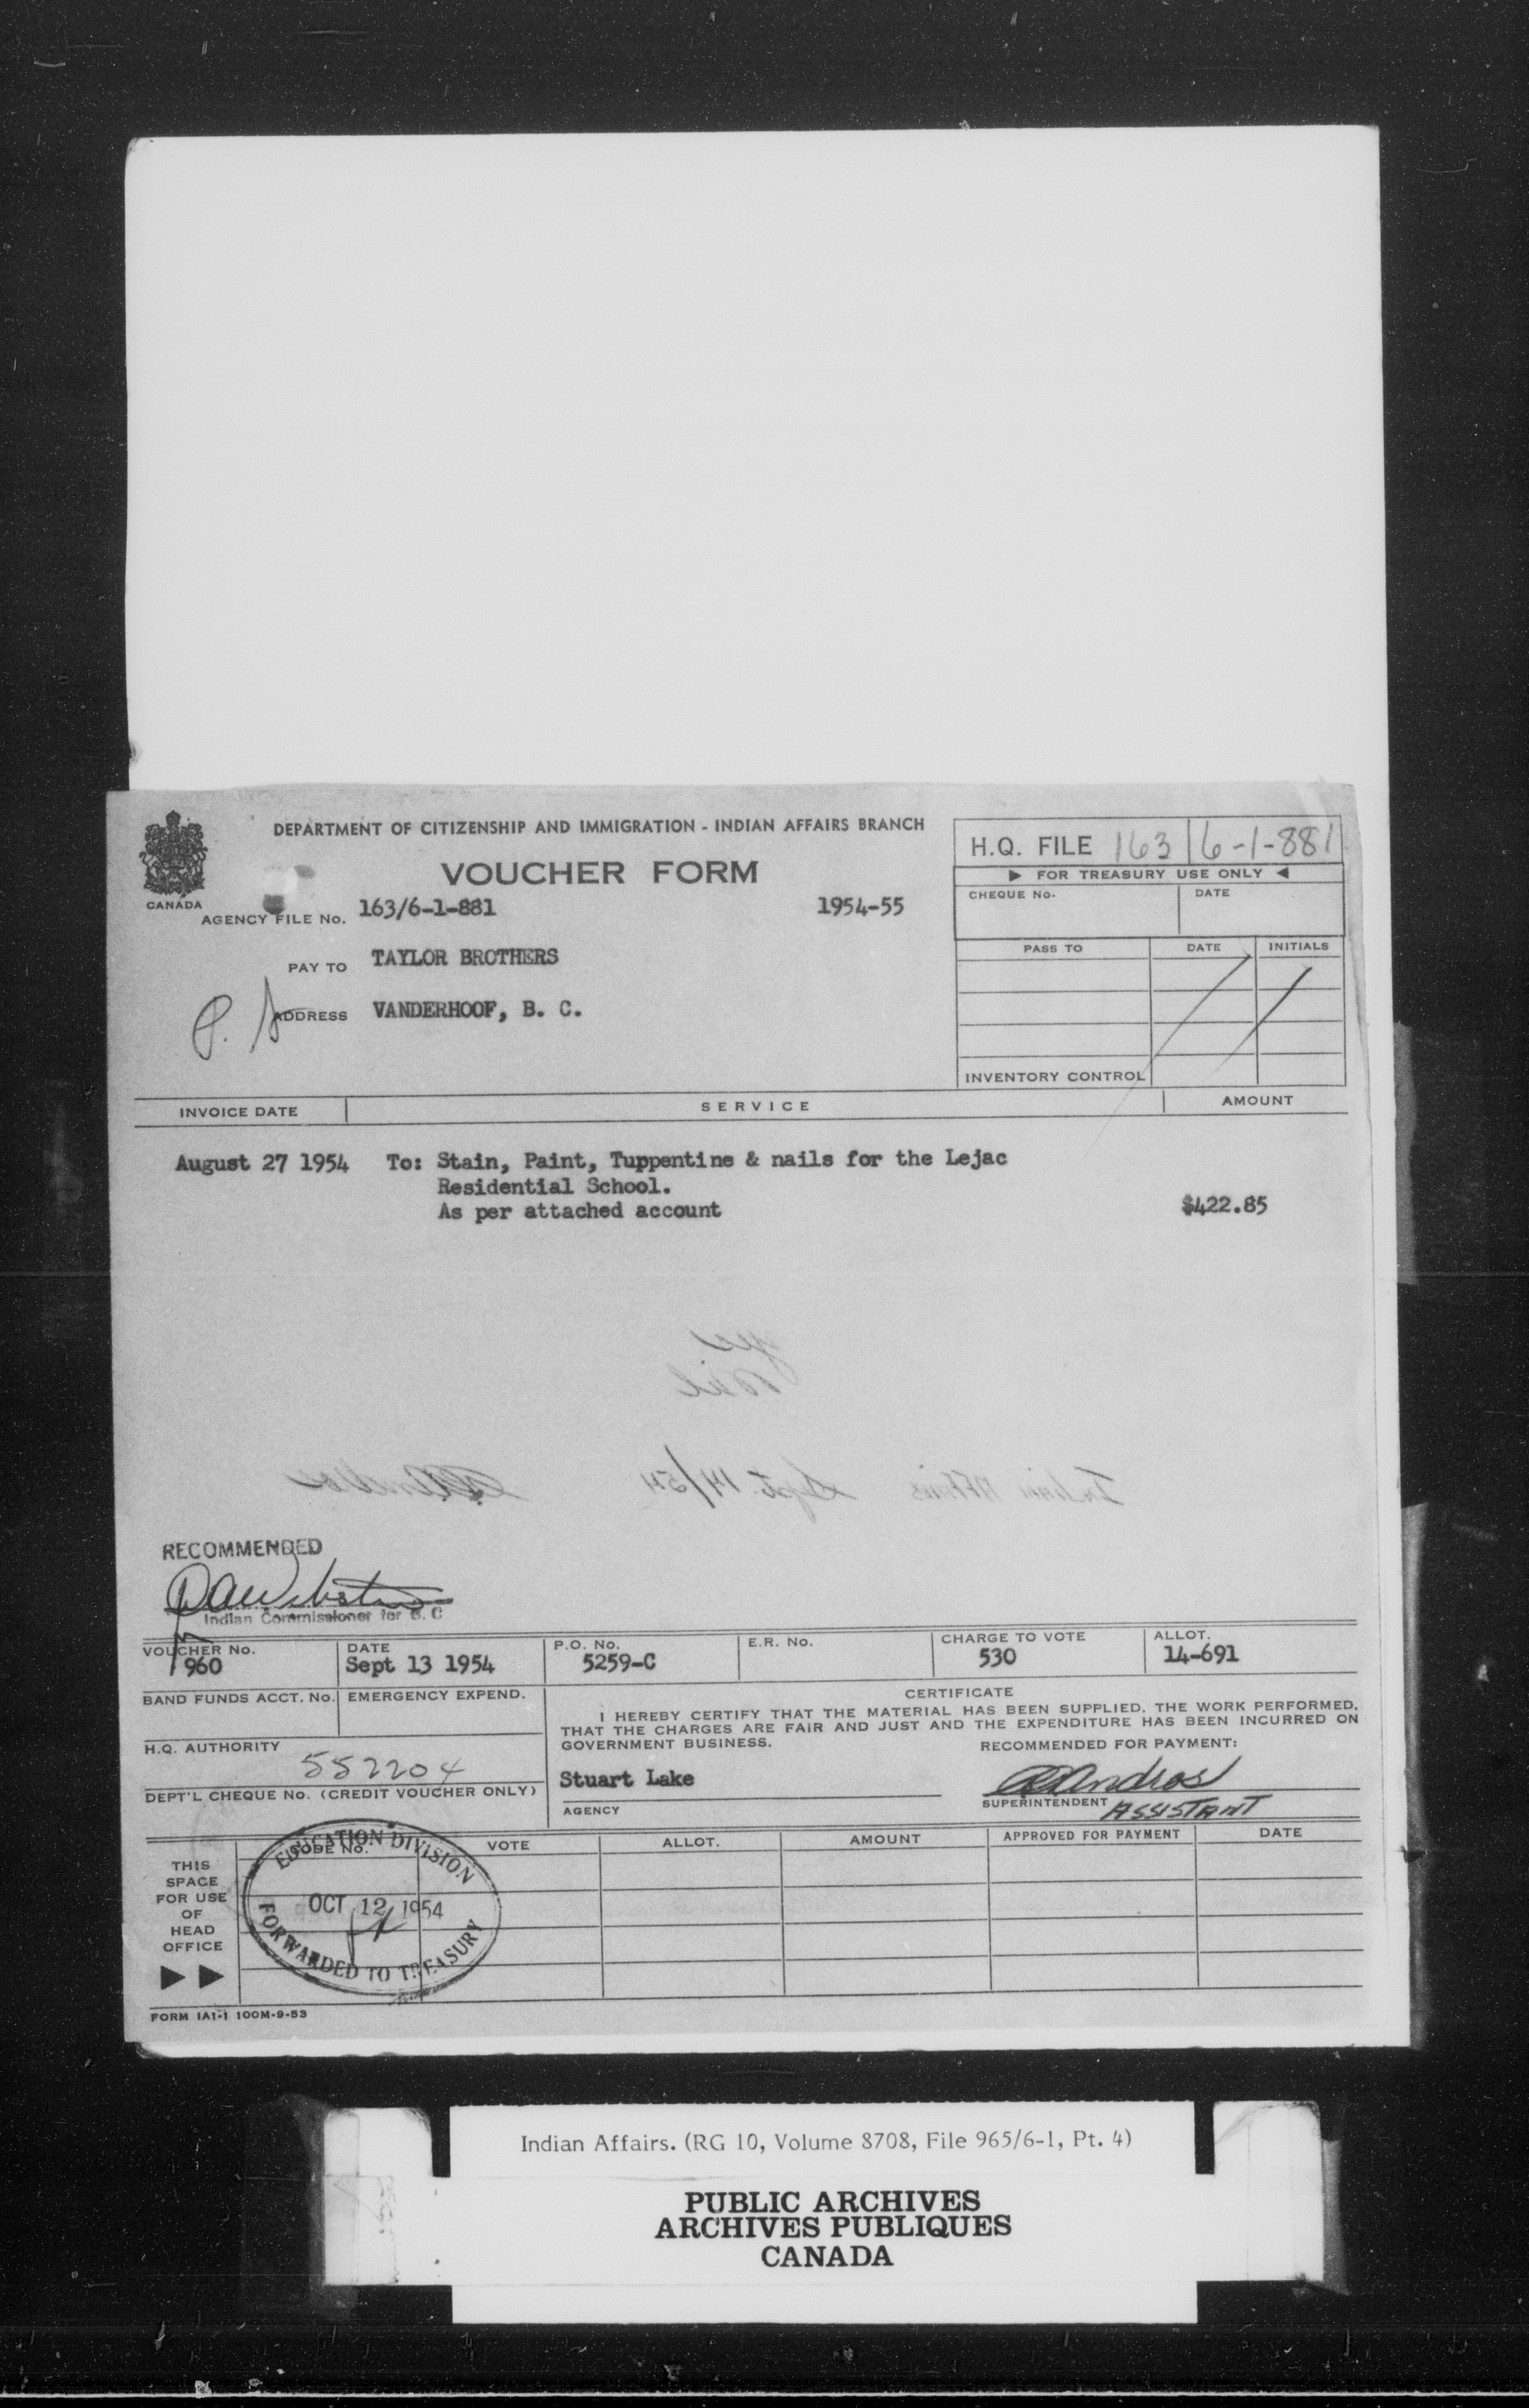 DEPARTMENT OF CITIZENSHIP AND IMMIGRATION - INDIAN AFFAIRS BRANCH
VOUCHER FORM
CANADA
H.Q. FILE 163/6-1-881
FOR TREASURY USE ONLY
CHEQUE No. DATE
AGENCY FILE No. 163/6-1-881 1954-55
PASS TO DATE INITIALS
PAY TO TAYLOR BROTHERS
ADDRESS VANDERHOOF, B. C.
INVENTORY CONTROL
INVOICE DATE SERVICE AMOUNT
August 27 1954 To: Stain, Paint, Tuppentine & nails for the Lejac
Residential School.
As per attached account $422.85
Sept. 14/54
RECOMMENDED
Indian Commissioner for B. C
VOUCHER No. DATE P.O. No. E.R. No. CHARGE TO VOTE ALLOT.
960 Sept 13 1954 5259-C 530 14-691
BAND FUNDS ACCT. No. EMERGENCY EXPEND. CERTIFICATE
I HEREBY CERTIFY THAT THE MATERIAL HAS BEEN SUPPLIED, THE WORK PERFORMED,
THAT THE CHARGES ARE FAIR AND JUST AND THE EXPENDITURE HAS BEEN INCURRED ON
GOVERNMENT BUSINESS.
RECOMMENDED FOR PAYMENT:
H.Q. AUTHORITY
552204
Stuart Lake
DEPT'L CHEQUE No. (CREDIT VOUCHER ONLY)
AGENCY
SUPERINTENDENT ASSISTANT
CODE No. VOTE ALLOT. AMOUNT APPROVED FOR PAYMENT DATE
THIS
SPACE
FOR USE
OF
HEAD
OFFICE
EDUCATION DIVISION
OCT 12 1954
FORWARDED TO TREASURY
FORM IA1-1 100M-9-53
Indian Affairs. (RG 10, Volume 8708, File 965/6-1, Pt. 4)
PUBLIC ARCHIVES
ARCHIVES PUBLIQUES
CANADA